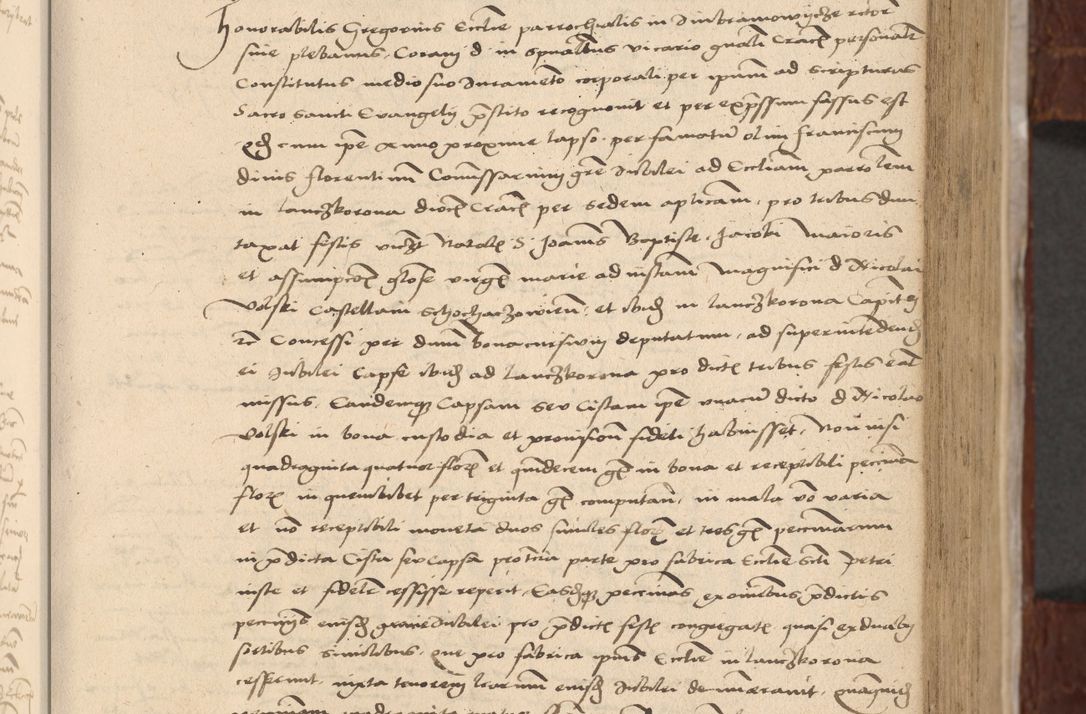 Honorabilis Gregorius Ecclie parrochialis in Dmbramowycze rector
siue plebanus, Coram d in spualibus vicario gnali Cracn personaliter
Constitutus medio suo Iuramento corporali per ipsum ad scripturas
Sacro sancti Evangelij prestito recognouit et per expressum fassus est
quod cum ipse anno proxime lapso per famatum olim Franciscum
divis florentinum Comissarium gre Iubilei ad Eccliam parrolem
in lanczkorona dioc Cracn per sedem aplicam, pro tribus dum
taxat festis vicz Natal S. Joannis Baptiste, Jacobi maioris
et assumpcon glose virginis marie ad instam Magnifici d Nicolai
Volski Castellani schochaczowien, et ibid in lanczkorona Capitanei
Concessi, per dnum bonacursium deputatum, ad superintedend
ei Iubilei Capse ibid ad lanczkorona pro dictis tribus festis eat
missus, Eandemque Capsam seu Cistam ipse vnacum dicto d Nicolao
Volski in bona custodia et prouision fideli habuisset, Non nisi
quadraginta quatuor floren et quindecem gr in bona et receptibili pecunia
floren in quemlibet per triginta gr computan, in mala vero varia
et non receptibili moneta duos similes floren et tres gr pecuniarum
in predicta Cista seu Capsa pro tercia parte pro fabrica Ecclie scti Petri
iuste et fidele cessisse reperit, Easdemque pecunias ex omnibus predictis
pecunijs eiusd gracie Iubilei pro predictis festis congregatis quasi ex duabus
sortibus similibus, que pro fabrica ipsius Ecclie in lanczkorona
cesserunt, iuxta tenorem lrarum eiusd Iubilei denumerauit,